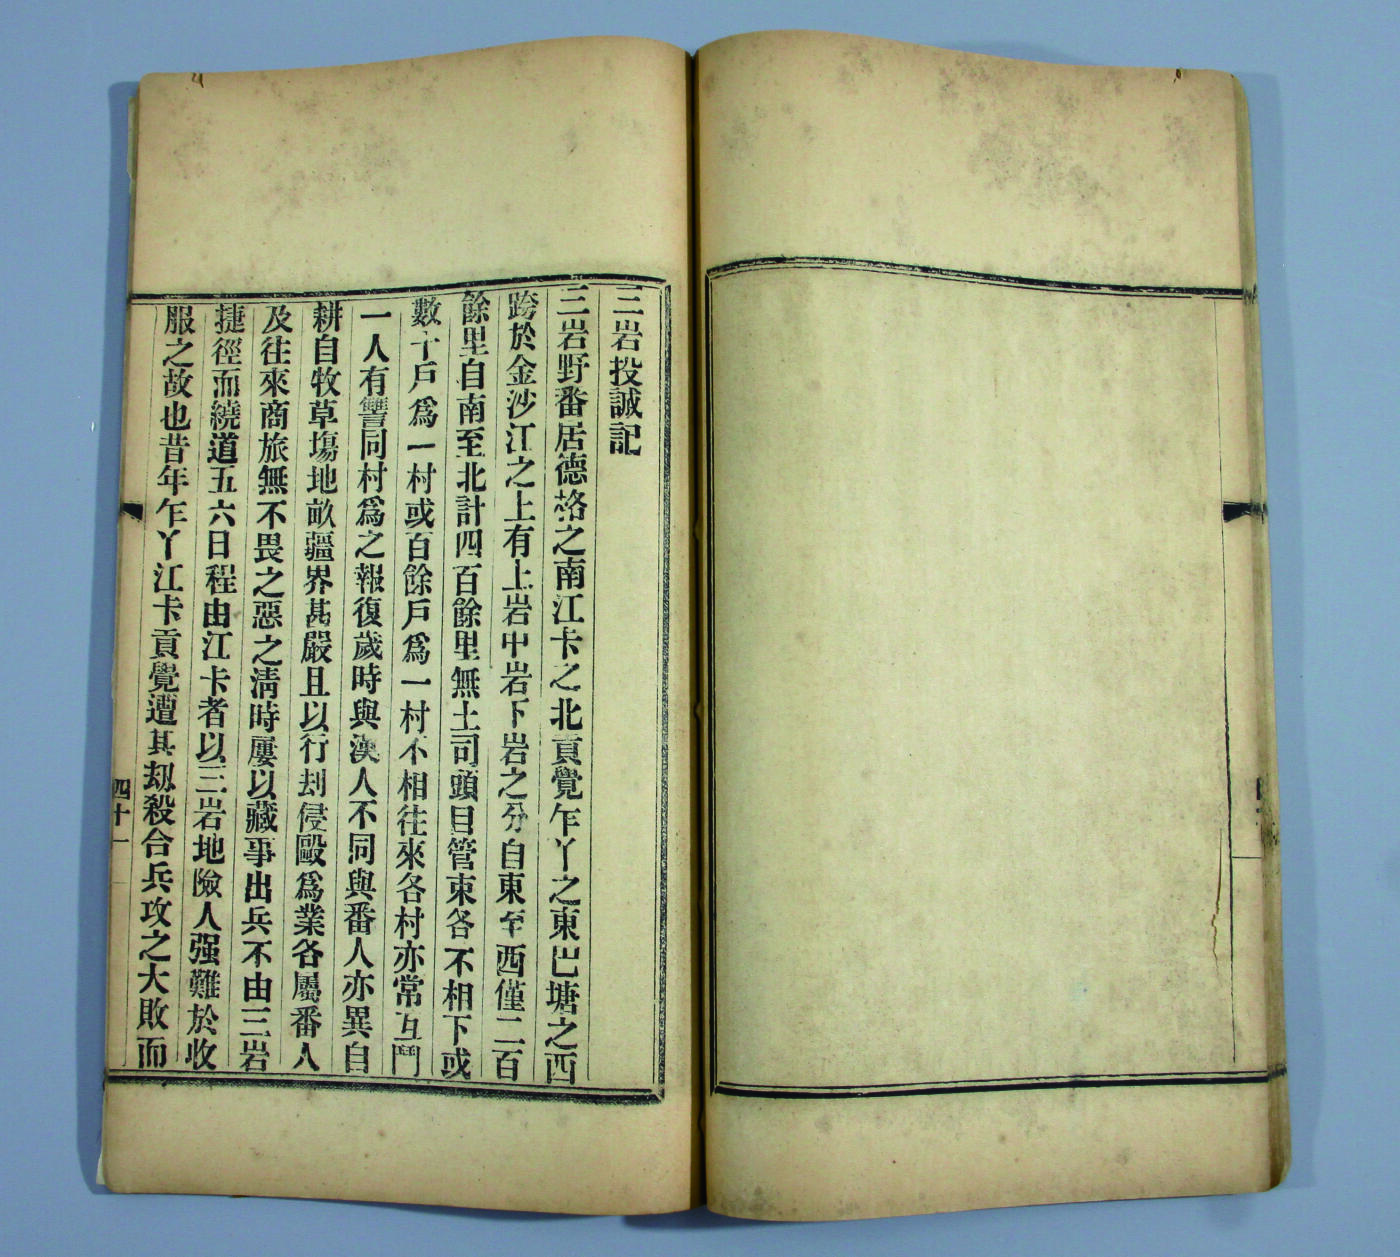 三岩投誠記
三岩野番居德格之南江卡之北貢覺乍丫之東巴塘之西
跨於金沙江之上有上岩中岩下岩之分自東至西僅二百
餘里自南至北計四百餘里無土司頭目管束各不相下或
數十戶爲一村或百餘戶爲一村不相往來各村亦常互鬥
一人有讐同村爲之報復歲時與漢人不同與番人亦異自
耕自牧草塲地畝疆界甚嚴且以行刦侵毆爲業各屬番人
及往來商旅無不畏之惡之清時屢以藏事出兵不由三岩
捷徑而繞道五六日程由江卡者以三岩地險人强難於收
服之故也昔年乍丫江卡貢覺遭其刼殺合兵攻之大敗而
四十一